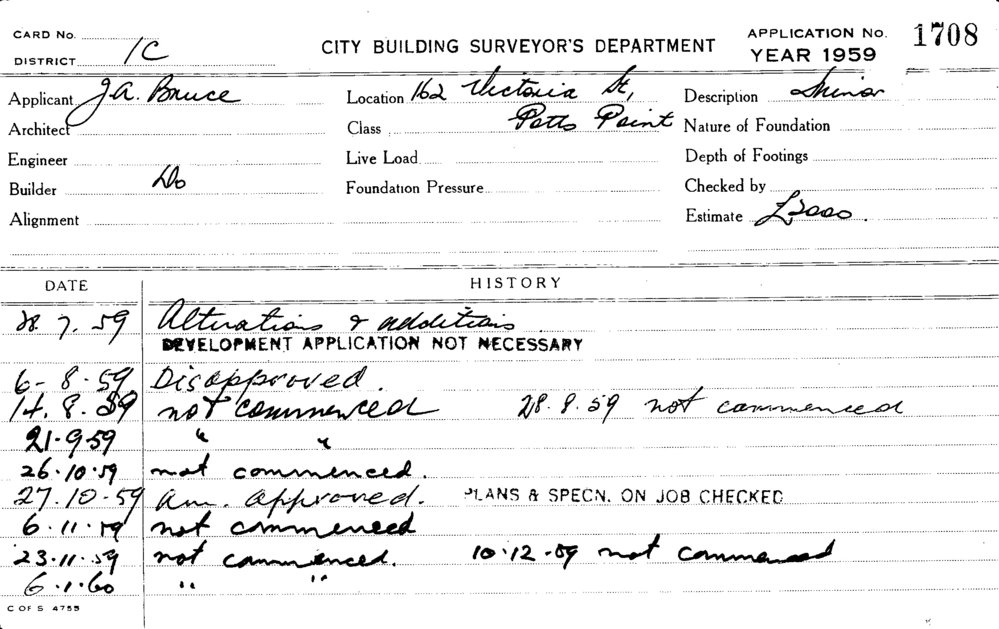 CARD No.
DISTRICT 1C
CITY BUILDING SURVEYOR'S DEPARTMENT
APPLICATION No. 1708
YEAR 1959
Applicant J.A. Bruce
Location 162 Victoria St,
Description Minor
Architect
Class Potts Point
Nature of Foundation
Engineer
Live Load
Depth of Footings
Builder Do
Foundation Pressure
Checked by
Alignment
Estimate £3000.
DATE HISTORY
28.7.59 Alterations & additions
DEVELOPMENT APPLICATION NOT NECESSARY
6-8-59 Disapproved.
14.8.59 not commenced 28.8.59 not commenced
21-9-59 " "
26.10.59 not commenced.
27.10-59 am. approved. PLANS & SPECN. ON JOB CHECKED
6.11.59 not commenced
23.11.59 not commenced. 10.12.59 not commenced
6.1.60 " "
C OF S 4755